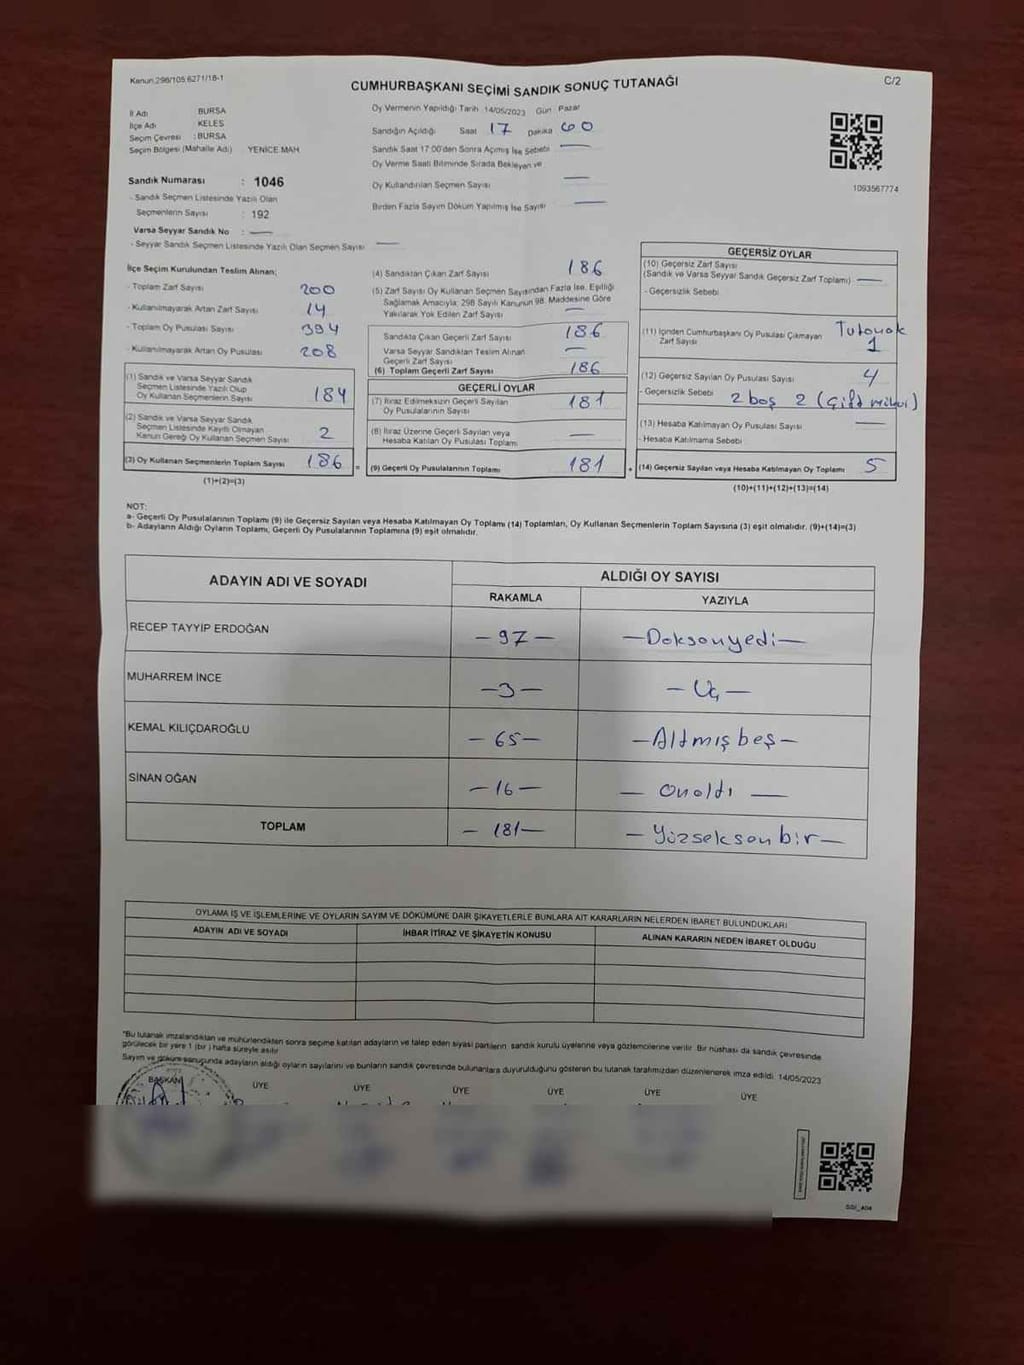 Kanun,298/105,6271/18-1
CUMHURBAŞKANI SEÇİMİ SANDIK SONUÇ TUTANAĞI
C/2
İl Adı BURSA
İlçe Adı KELES
Seçim Çevresi : BURSA
Seçim Bölgesi (Mahalle Adı) YENİCE MAH.
Oy Vermenin Yapıldığı Tarih 14/05/2023 Gün Pazar
Sandığın Açıldığı Saat 17 Dakika 00
Sandık Saat 17:00'den Sonra Açmış İse Sebebi —
Oy Verme Saati Bitiminde Sırada Bekleyen ve
Oy Kullandırılan Seçmen Sayısı —
Birden Fazla Sayım Döküm Yapılmış İse Sayısı —
1093567774
Sandık Numarası : 1046
- Sandık Seçmen Listesinde Yazılı Olan
Seçmenlerin Sayısı : 192
Varsa Seyyar Sandık No : —
- Seyyar Sandık Seçmen Listesinde Yazılı Olan Seçmen Sayısı —
İlçe Seçim Kurulundan Teslim Alınan;
- Toplam Zarf Sayısı 200
- Kullanılmayarak Artan Zarf Sayısı 14
- Toplam Oy Pusulası Sayısı 394
- Kullanılmayarak Artan Oy Pusulası 208
(1) Sandık ve Varsa Seyyar Sandık
Seçmen Listesinde Yazılı Olup
Oy Kullanan Seçmenlerin Sayısı 184
(2) Sandık ve Varsa Seyyar Sandık
Seçmen Listesinde Kayıtlı Olmayan
Kanun Gereği Oy Kullanan Seçmen Sayısı 2
(3) Oy Kullanan Seçmenlerin Toplam Sayısı 186 =
(1)+(2)=(3)
(4) Sandıktan Çıkan Zarf Sayısı 186
(5) Zarf Sayısı Oy Kullanan Seçmen Sayısından Fazla İse, Eşitliği
Sağlamak Amacıyla; 298 Sayılı Kanunun 98. Maddesine Göre
Yakılarak Yok Edilen Zarf Sayısı —
Sandıkta Çıkan Geçerli Zarf Sayısı 186
Varsa Seyyar Sandıktan Teslim Alınan
Geçerli Zarf Sayısı —
(6) Toplam Geçerli Zarf Sayısı 186
GEÇERLİ OYLAR
(7) İtiraz Edilmeksizin Geçerli Sayılan
Oy Pusulalarının Sayısı 181
(8) İtiraz Üzerine Geçerli Sayılan veya
Hesaba Katılan Oy Pusulası Toplamı —
(9) Geçerli Oy Pusulalarının Toplamı 181 +
GEÇERSİZ OYLAR
(10) Geçersiz Zarf Sayısı
(Sandık ve Varsa Seyyar Sandık Geçersiz Zarf Toplamı) —
- Geçersizlik Sebebi
(11) İçinden Cumhurbaşkanı Oy Pusulası Çıkmayan Tutanak
Zarf Sayısı 1
(12) Geçersiz Sayılan Oy Pusulası Sayısı 4
- Geçersizlik Sebebi 2 boş 2 (Çift mühür)
(13) Hesaba Katılmayan Oy Pusulası Sayısı —
- Hesaba Katılmama Sebebi
(14) Geçersiz Sayılan veya Hesaba Katılmayan Oy Toplamı 5
(10)+(11)+(12)+(13)=(14)
NOT:
a- Geçerli Oy Pusulalarının Toplamı (9) ile Geçersiz Sayılan veya Hesaba Katılmayan Oy Toplamı (14) Toplamları, Oy Kullanan Seçmenlerin Toplam Sayısına (3) eşit olmalıdır. (9)+(14)=(3)
b- Adayların Aldığı Oyların Toplamı, Geçerli Oy Pusulalarının Toplamına (9) eşit olmalıdır.
ADAYIN ADI VE SOYADI ALDIĞI OY SAYISI
RAKAMLA YAZIYLA
RECEP TAYYİP ERDOĞAN — 97 — — Doksanyedi —
MUHARREM İNCE — 3 — — Üç —
KEMAL KILIÇDAROĞLU — 65 — — Altmışbeş —
SİNAN OĞAN — 16 — — Onaltı —
TOPLAM — 181 — — Yüzseksenbir —
OYLAMA İŞ VE İŞLEMLERİNE VE OYLARIN SAYIM VE DÖKÜMÜNE DAİR ŞİKAYETLERLE BUNLARA AİT KARARLARIN NELERDEN İBARET BULUNDUKLARI
ADAYIN ADI VE SOYADI İHBAR İTİRAZ VE ŞİKAYETİN KONUSU ALINAN KARARIN NEDEN İBARET OLDUĞU
*Bu tutanak imzalandıktan ve mühürlendikten sonra seçime katılan adayların ve talep eden siyasi partilerin, sandık kurulu üyelerine veya gözlemcilerine verilir. Bir nüshası da sandık çevresinde
görülecek bir yere 1 (bir) hafta süreyle asılır.
Sayım ve döküm sonucunda adayların aldığı oyların sayılarını ve bunların sandık çevresinde bulunanlara duyurulduğunu gösteren bu tutanak tarafımızdan düzenlenerek imza edildi. 14/05/2023
BAŞKAN ÜYE ÜYE ÜYE ÜYE ÜYE ÜYE